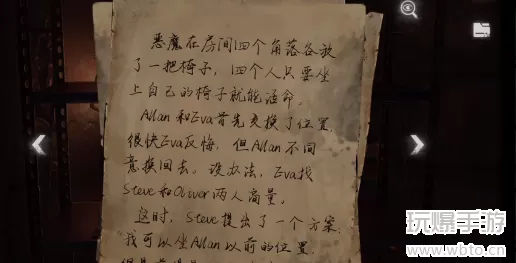 恶魔在房间四个角落各放
了一把椅子，四个人只要坐
上自己的椅子就能活命。
Allan和Eva首先交换了位置，
很快Eva反悔，但Allan不同
意换回去。没办法，Eva找
Steve和Oliver两人商量。
这时，Steve提出了一个方案，
“我可以坐Allan以前的位置，
玩爆手游
www.wbto.cn